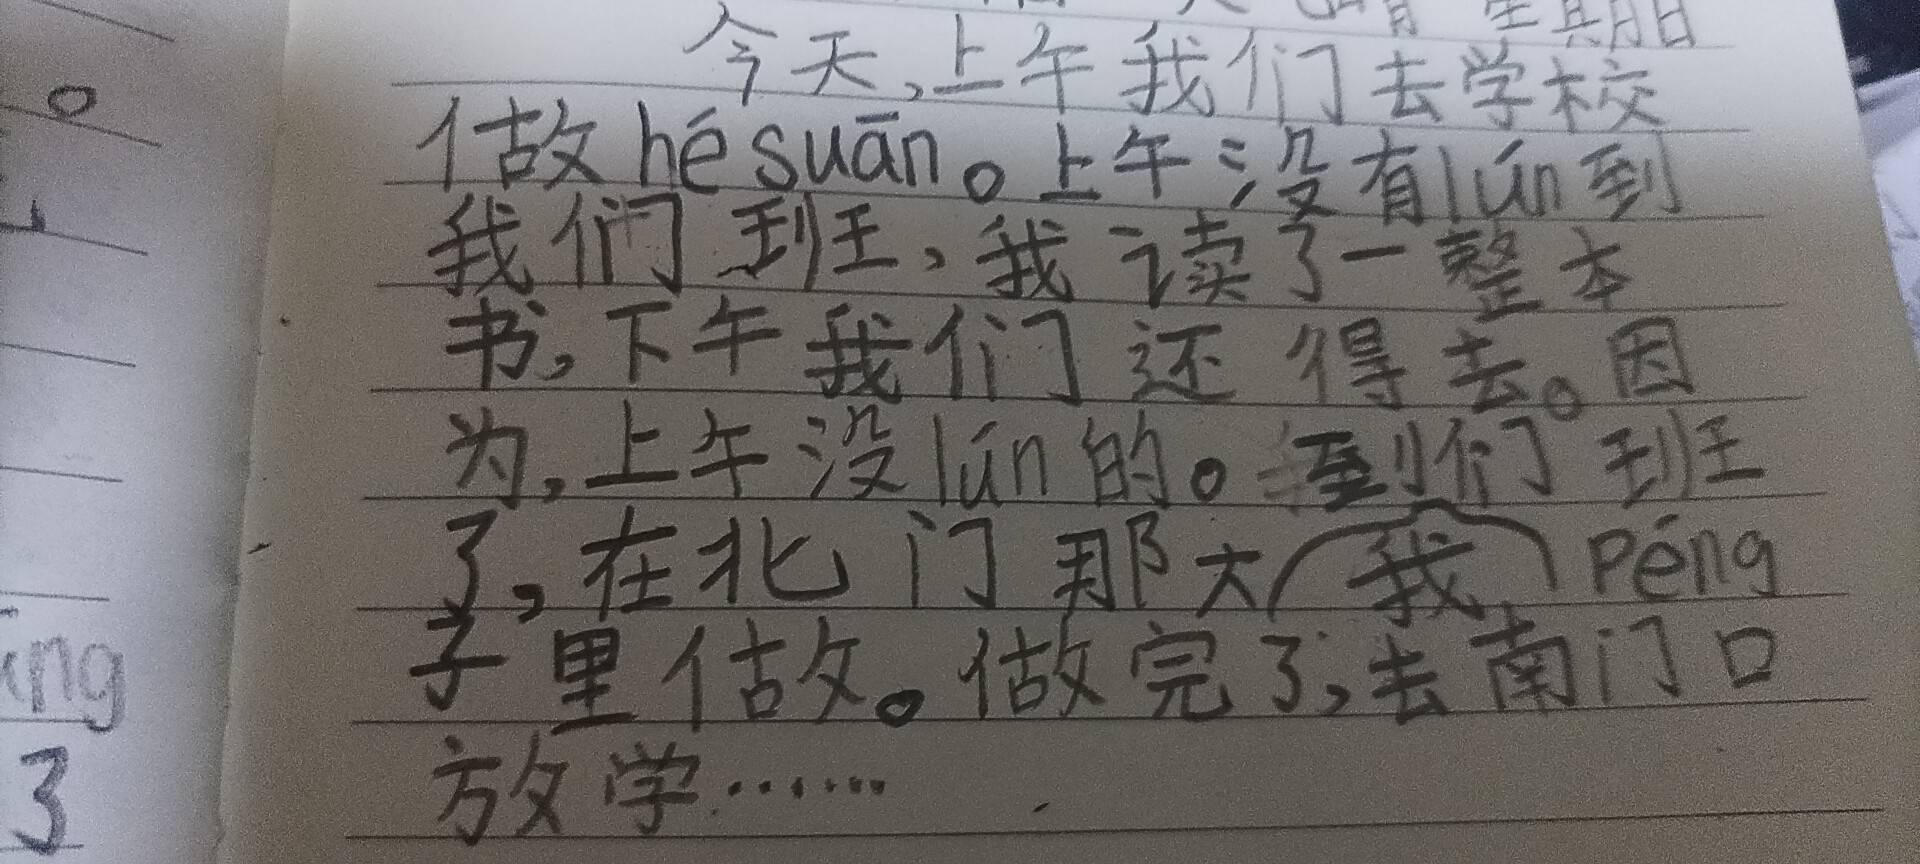 星期日
今天,上午我们去学校
做hésuān。上午没有lún到
我们到班,我读了一整本
书,下午我们还得去。因
为,上午没lún的。到们到班
了,在北门那大(我)péng
子里做。做完了,去南门口
放学……
ing
3